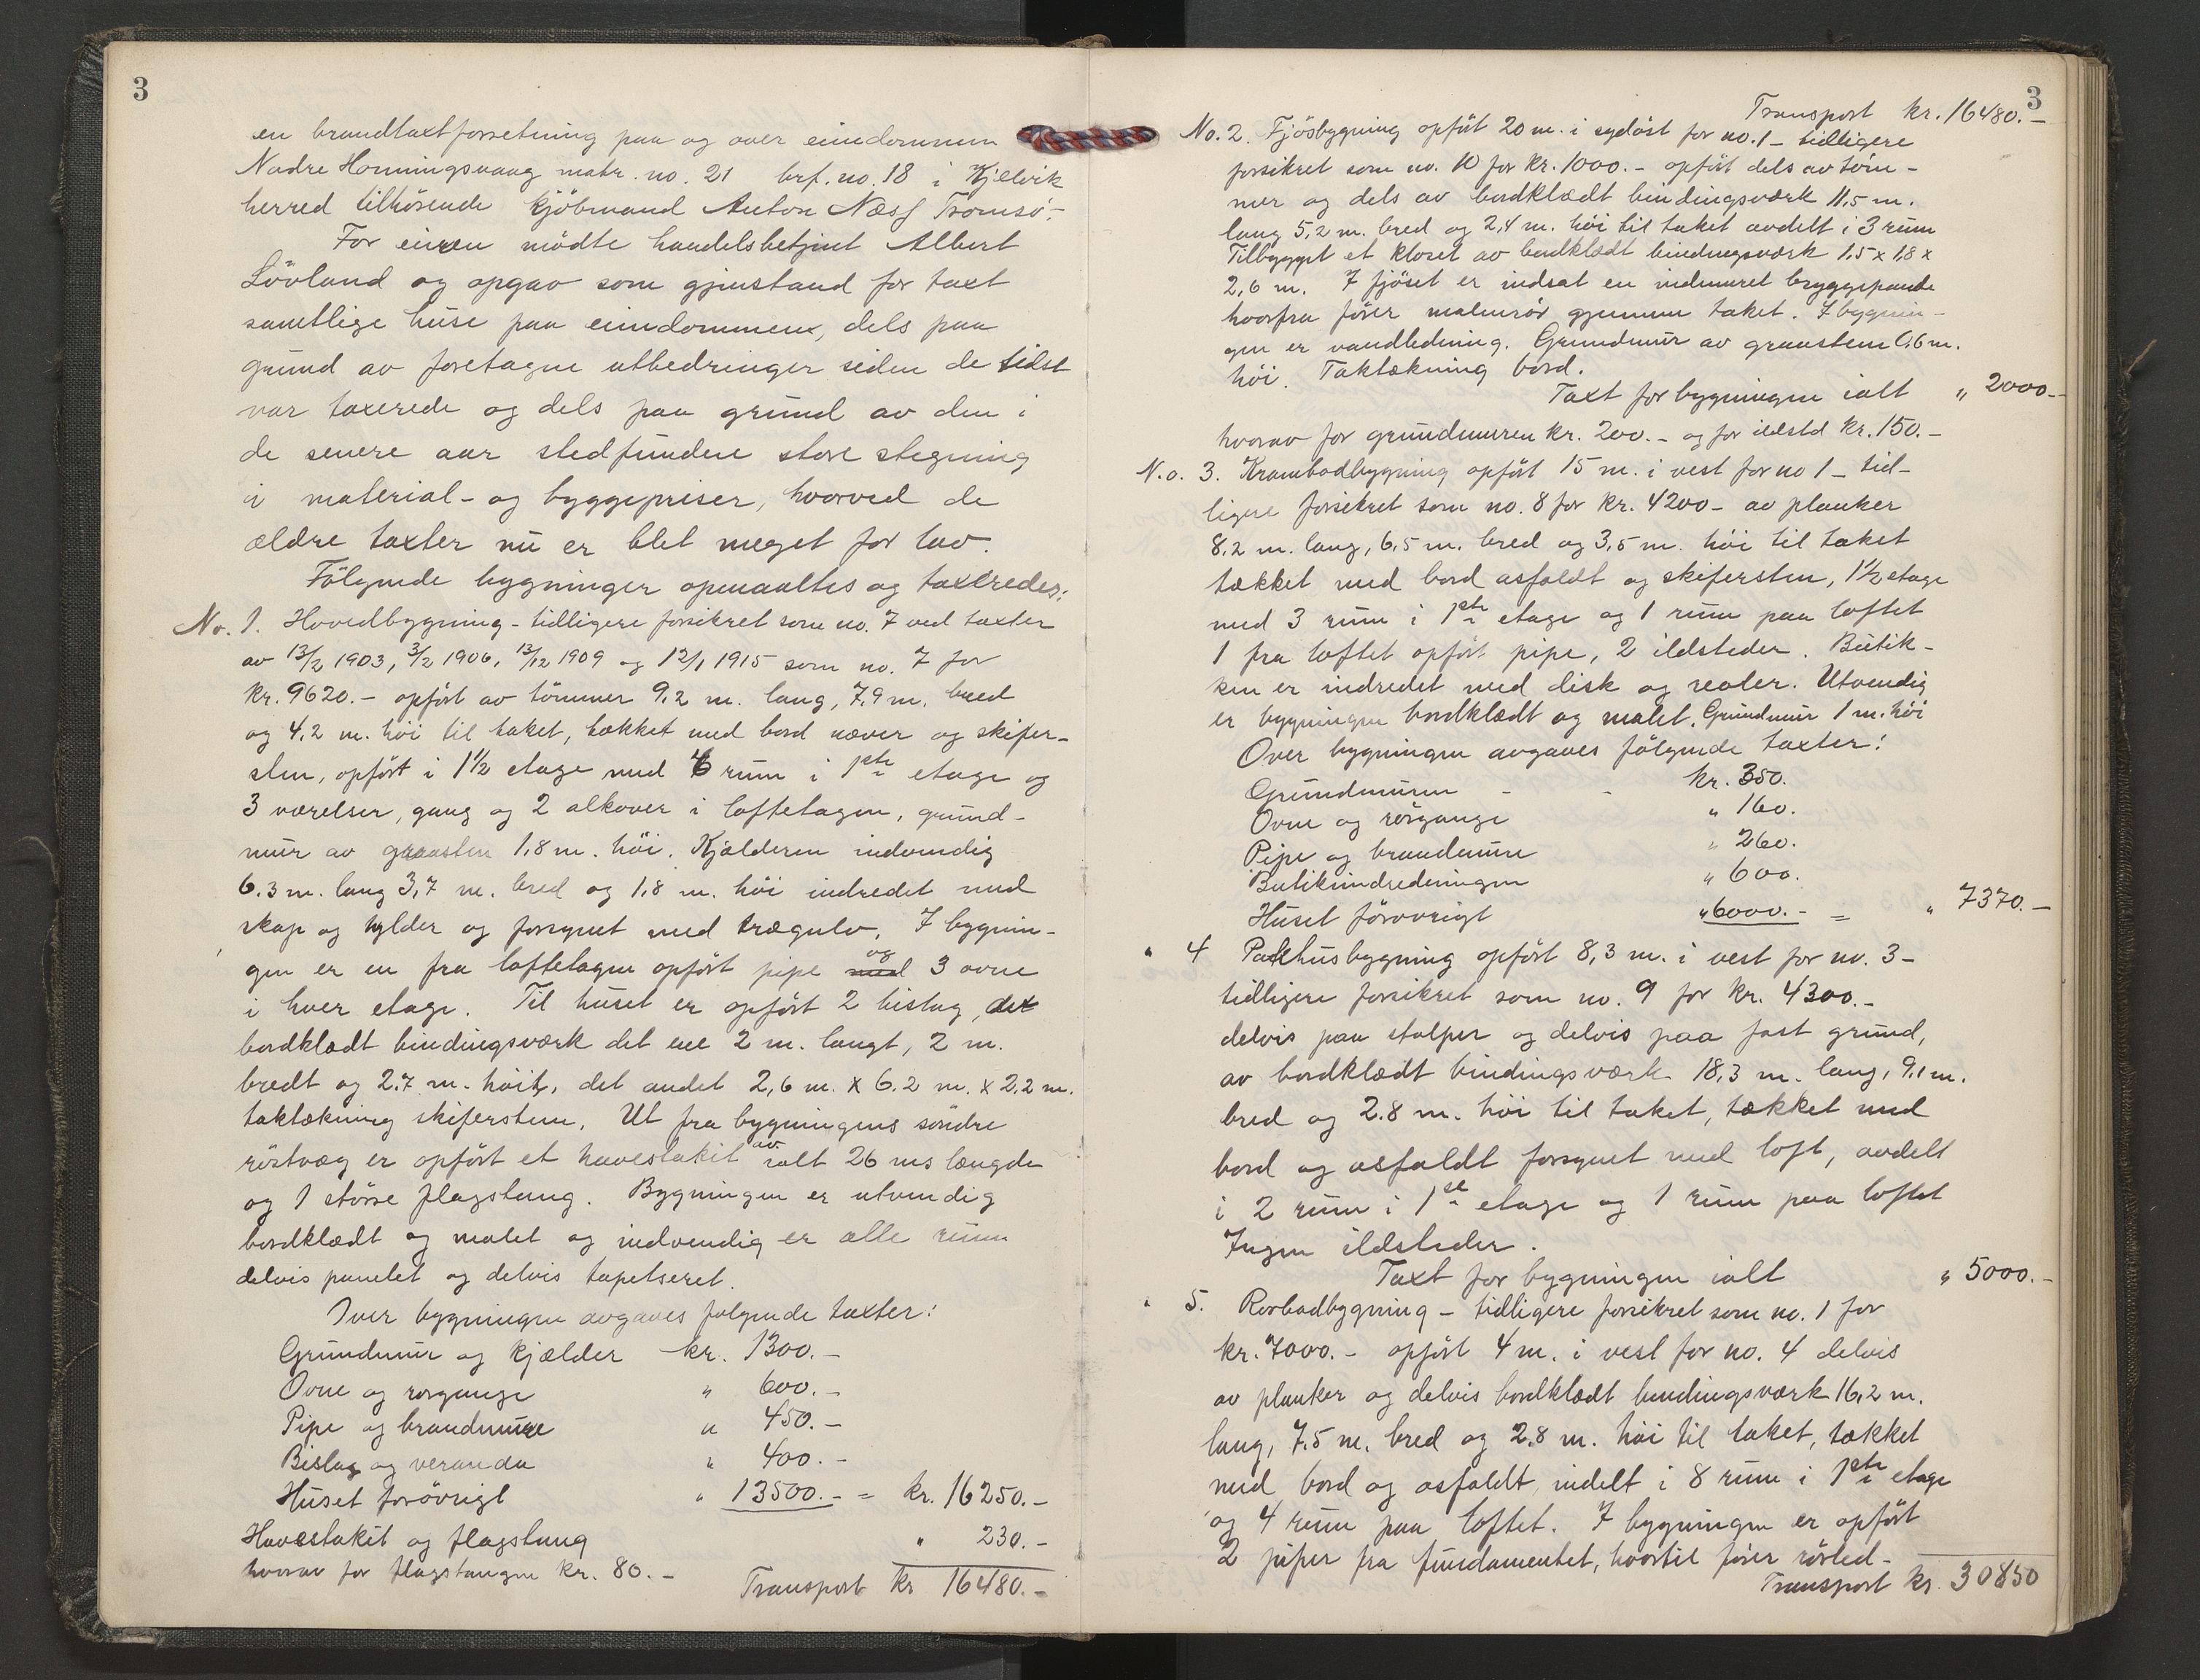 3
en brandtaxtforretning paa og over eiendommen
Nedre Honningsvaag matr. no. 21 brf. no. 18 i Kjelvik
herred tilhörende kjöbmand Anton Næss Tromsö.-
For eieren mödte handelsbetjent Albert
Lövland og opgav som gjenstand for taxt
samtlige huse paa eiendommen, dels paa
grund av foretagne utbedringer siden de sidst
var taxerede og dels paa grund av den i
de senere aar stedfundene store stegning
i material- og byggepriser, hvorved de
ældre taxter nu er blet meget for lav.
Fölgende bygninger opmaaltes og taxeredes:
No. 1. Hovedbygning - tidligere forsikret som no. 7 ved taxter
av 13/2 1903, 3/2 1906, 13/12 1909 og 12/1 1915 som no. 7 for
kr. 9620.- opfört av tömmer 9,2 m. lang, 7,9 m. bred
og 4,2 m. höi til taket, tækket med bord næver og skifer-
sten, opfört i 1½ etage med 6 rum i 1ste etage og
3 værelser, gang og 2 alkover i loftetagen, grund-
mur av graasten 1,8 m. höi. Kjælderen indvendig
6.3 m. lang 3,7 m. bred og 1,8 m. höi indredet med
skap og hylder og forsynet med trægulv. I bygnin-
gen er en fra loftetagen opfört pipe med og 3 ovne
i hver etage. Til huset er opfört 2 bislag, det
bordklædt bindingsværk det ene 2 m. langt, 2 m.
bredt og 2.7 m. höit, det andet 2,6 m. x 6.2 m. x 2.2 m.
taktækning skifersten. Ut fra bygningens söndre
röstvæg er opfört et havestakit av ialt 26 ms længde
og 1 större flagstang. Bygningen er utvendig
bordklædt og malet og indvendig er alle rum
delvis panelet og delvis tapetseret.
Over bygningen avgaves fölgende taxter:
Grundmur og kjælder kr. 1300.-
Ovne og rörgange " 600.-
Pipe og brandmure " 450.-
Bislag og veranda " 400.-
Huset forövrigt " 13500.- = kr. 16250.-
Havestakit og flagstang " 230.-
hvorav for flagstangen kr. 80.-
Transport kr 16480.-
3
Transport kr. 16480.-
No. 2. Fjösbygning opfört 20 m. i sydöst for no. 1 - tidligere
forsikret som no. 10 for kr. 1000.- opfört dels av töm-
mer og dels av bordklædt bindingsværk 11,5 m.
lang 5,2 m. bred og 2,4 m. höi til taket avdelt i 3 rum
Tilbygget et kloset av bordklædt bindingsværk 1,5 x 1,8 x
2,6 m. I fjöset er indsat en indmuret bryggepande
hvorfra förer malmrör gjennem taket. I bygnin-
gen er vandledning. Grundmur av graasten 0,6 m.
höi. Taktækning bord.
Taxt for bygningen ialt " 2000.-
hvorav for grundmuren kr. 200.- og for ildsted kr. 150.-
No. 3. Krambodbygning opfört 15 m. i vest for no 1 - tid-
ligere forsikret som no. 8 for kr. 4200 - av planker
8.2 m. lang, 6,5 m. bred og 3,5 m. höi til taket
tækket med bord asfaldt og skifersten, 1½ etage
med 3 rum i 1ste etage og 1 rum paa loftet
1 fra loftet opfört pipe, 2 ildsteder. Butik-
ken er indredet med disk og reoler. Utvendig
er bygningen bordklædt og malet. Grundmur 1 m. höi
Over bygningen avgaves fölgende taxter:
Grundmuren - - kr. 350.
Ovne og rörgange " 160.
Pipe og brandmure " 260.
Butikindredningen " 600.
Huset forövrigt " 6000.- = " 7370.-
" 4 Pakhusbygning opfört 8,3 m. i vest for no. 3 -
tidligere forsikret som no. 9 for kr. 4300.-
delvis paa stolper og delvis paa fast grund,
av bordklædt bindingsværk 18,3 m. lang, 9,1 m.
bred og 2.8 m. höi til taket, tækket med
bord og asfaldt forsynet med loft, avdelt
i 2 rum i 1ste etage og 1 rum paa loftet
Ingen ildsteder.
Taxt for bygningen ialt " 5000.-
" 5. Rorbodbygning - tidligere forsikret som no. 1 for
kr. 7000.- opfört 4 m. i vest for no. 4 delvis
av planker og delvis bordklædt bindingsværk 16,2 m.
lang, 7.5 m. bred og 2.8 m. höi til taket, tækket
med bord og asfaldt, indelt i 8 rum i 1ste etage
og 4 rum paa loftet. I bygningen er opfört
2 piper fra fundamentet, hvortil förer rörled-
Transport kr. 30850